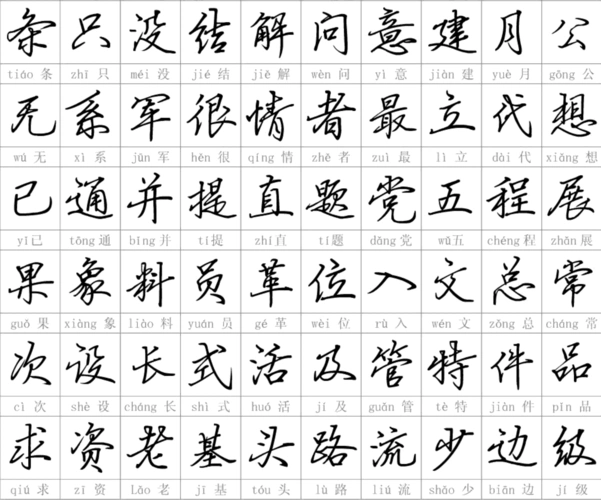 条 只 没 结 解 问 意 建 月 公
tiáo 条 zhǐ 只 méi 没 jié 结 jiě 解 wèn 问 yì 意 jiàn 建 yuè 月 gōng 公
无 系 军 很 情 者 最 立 代 想
wú 无 xì 系 jūn 军 hěn 很 qíng 情 zhě 者 zuì 最 lì 立 dài 代 xiǎng 想
已 通 并 提 直 题 党 五 程 展
yǐ已 tōng 通 bìng 并 tí提 zhí直 tí题 dǎng 党 wǔ五 chéng 程 zhǎn 展
果 象 料 员 革 位 入 文 总 常
guǒ 果 xiàng 象 liào 料 yuán 员 gé 革 wèi 位 rù 入 wén 文 zǒng 总 cháng 常
次 设 长 式 活 及 管 特 件 品
cì 次 shè 设 cháng 长 shì 式 huó 活 jí 及 guǎn 管 tè 特 jiàn 件 pǐn 品
求 资 老 基 头 路 流 少 边 级
qiú 求 zī 资 Lǎo 老 jī 基 tóu 头 lù 路 liú 流 shǎo 少 biān 边 jí 级